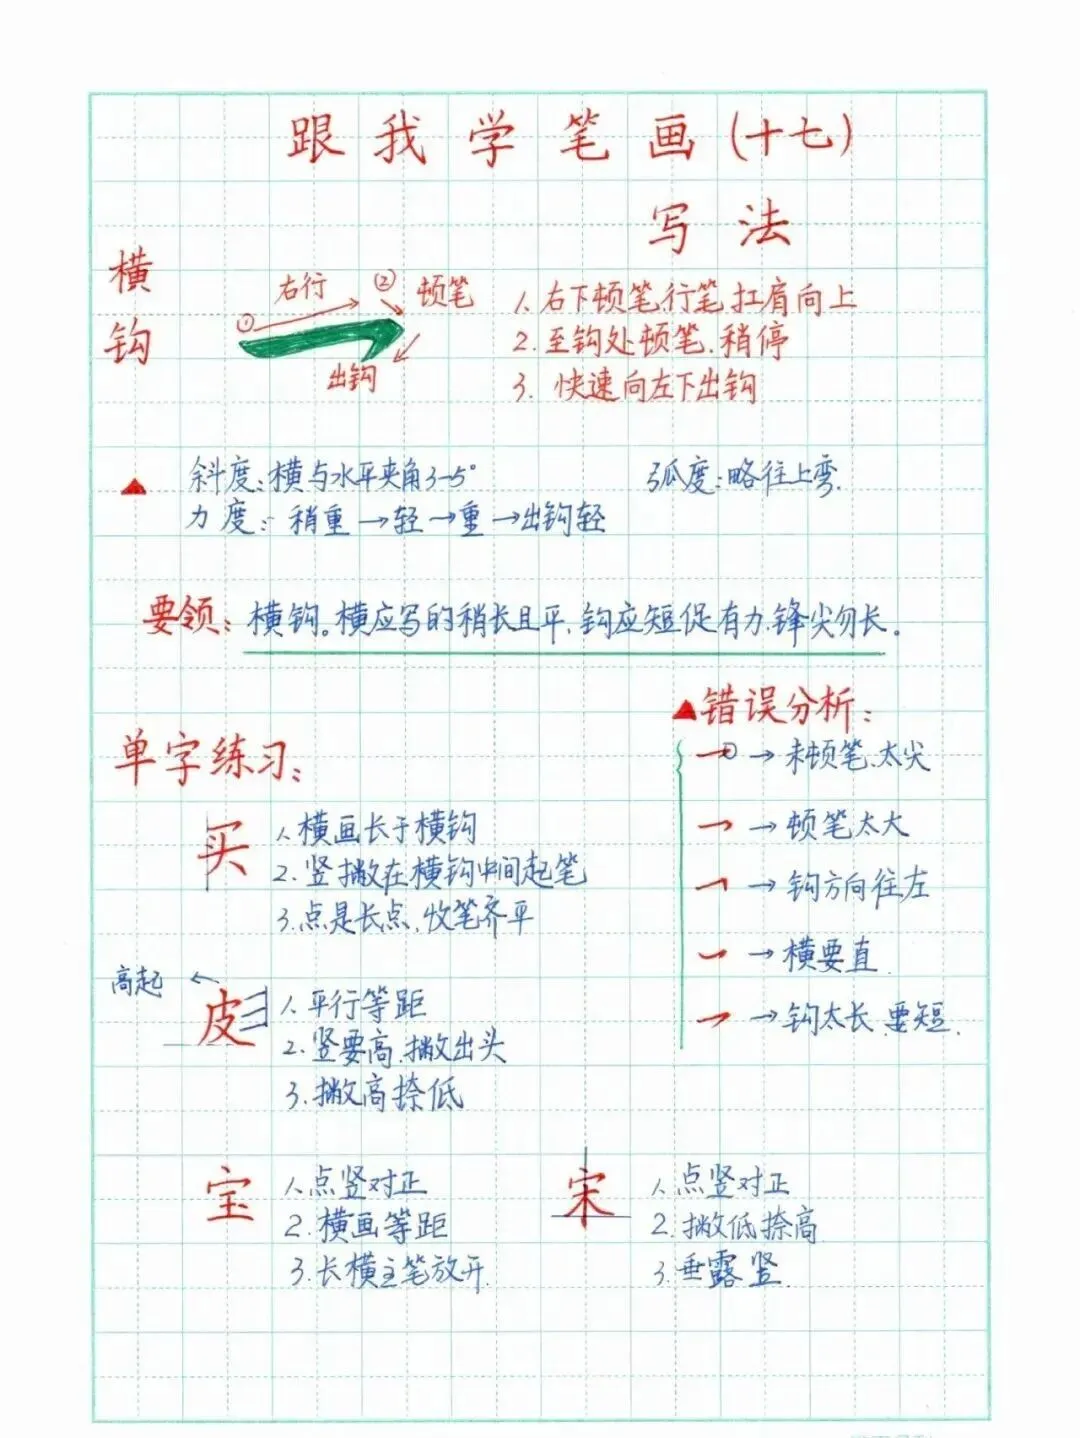 跟我学笔画(十七)
写法
横钩
① 右行 ② 顿笔
出钩
1. 右下顿笔,行笔,扛肩向上
2. 至钩处顿笔.稍停
3. 快速向左下出钩
斜度:横与水平夹角3-5° 弧度:略往上弯.
力度:稍重→轻→重→出钩轻
要领:横钩。横应写的稍长且平,钩应短促有力,锋尖勿长。
▲错误分析:
→未顿笔.太尖
→顿笔太大
→钩方向往左
→横要直
→钩太长.要短.
单字练习:
买
1. 横画长于横钩
2. 竖撇在横钩中间起笔
3. 点是长点,收笔齐平
高起
皮
1. 平行等距
2. 竖要高.撇出头
3. 撇高捺低
宝
1. 点竖对正
2. 横画等距
3. 长横主笔放开.
宋
1. 点竖对正
2. 撇低捺高
3. 垂露竖.